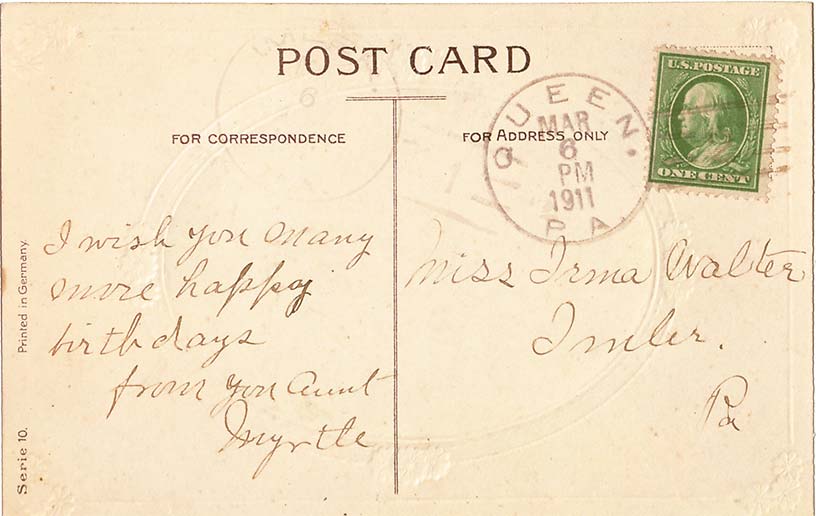 POST CARD
FOR CORRESPONDENCE
FOR ADDRESS ONLY
QUEEN.
MAR
6
PM
1911
PA
U.S. POSTAGE
ONE CENT
I wish you many
more happy
birthdays
from you Aunt
Myrtle
Miss Irma Walter
Imler.
Pa
Printed in Germany.
Serie 10.